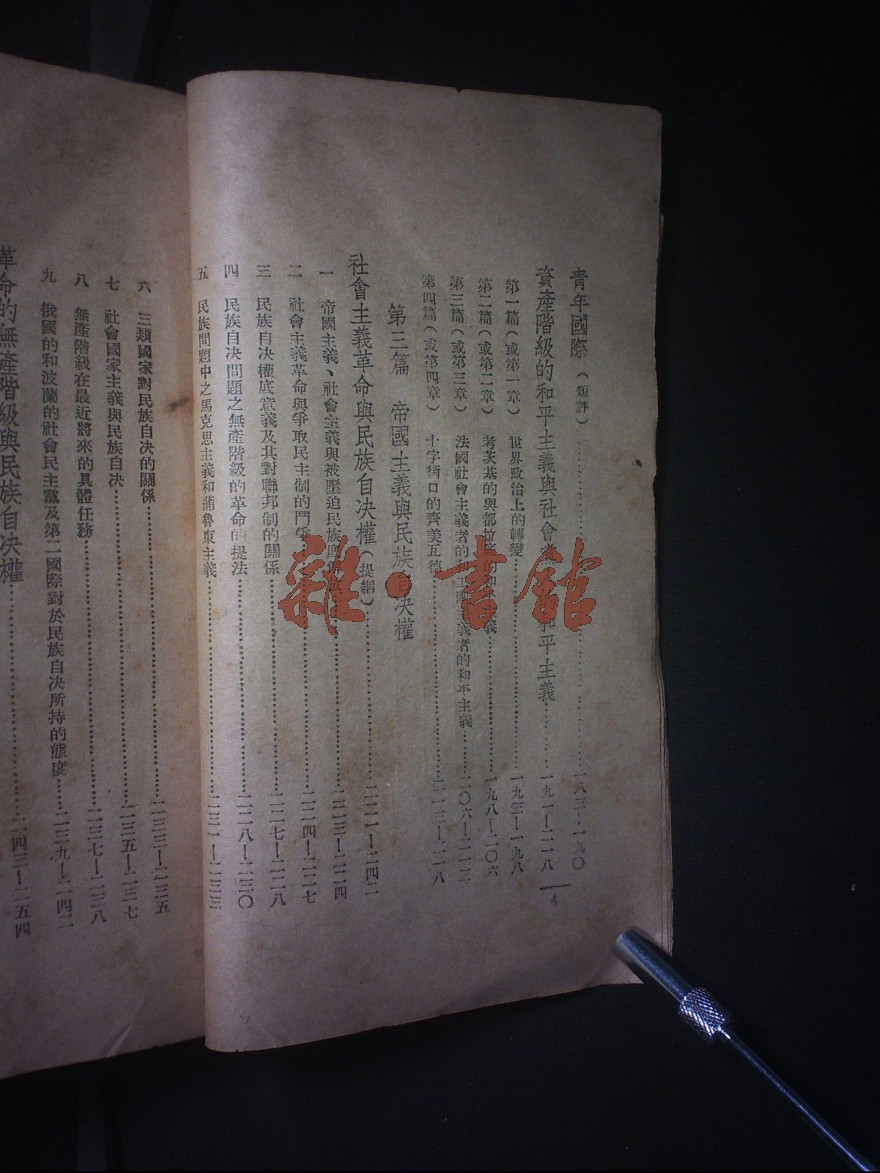 青年國際(短評)……一八三—一九〇
資產階級的和平主義與社會 和平主義……一九一—二一八
第一篇(或第一章) 世界政治上的轉變……一九三—一九八
第二篇(或第二章) 考茨基的與都拉 和 義……一九八—二〇六
第三篇(或第三章) 法國社會主義者的 工 主義者的和平主義……二〇六—二一二
第四篇(或第四章) 十字街口的齊美瓦德……二一三—二一八
第三篇 帝國主義與民族自決權
社會主義革命與民族自決權(提綱)……二二一—二四二
一 帝國主義、社會主義與被壓迫民族底 ……二二三—二二四
二 社會主義革命與爭取民主制的鬥爭……二二四—二二七
三 民族自決權底意義及其對聯邦制的關係……二二七—二二八
四 民族自決問題之無產階級的革命的提法……二二八—二三〇
五 民族問題中之馬克思主義和蒲魯東主義……二三一—二三三
4
六 三類國家對民族自決的關係……二三三—二三五
七 社會國家主義與民族自決……二三五—二三七
八 無產階級在最近將來的具體任務……二三七—二三八
九 俄國的和波蘭的社會民主黨及第二國際對於民族自決所持的態度……二三九—二四二
革命的無產階級與民族自決權……二四三—二五四
雜·書館